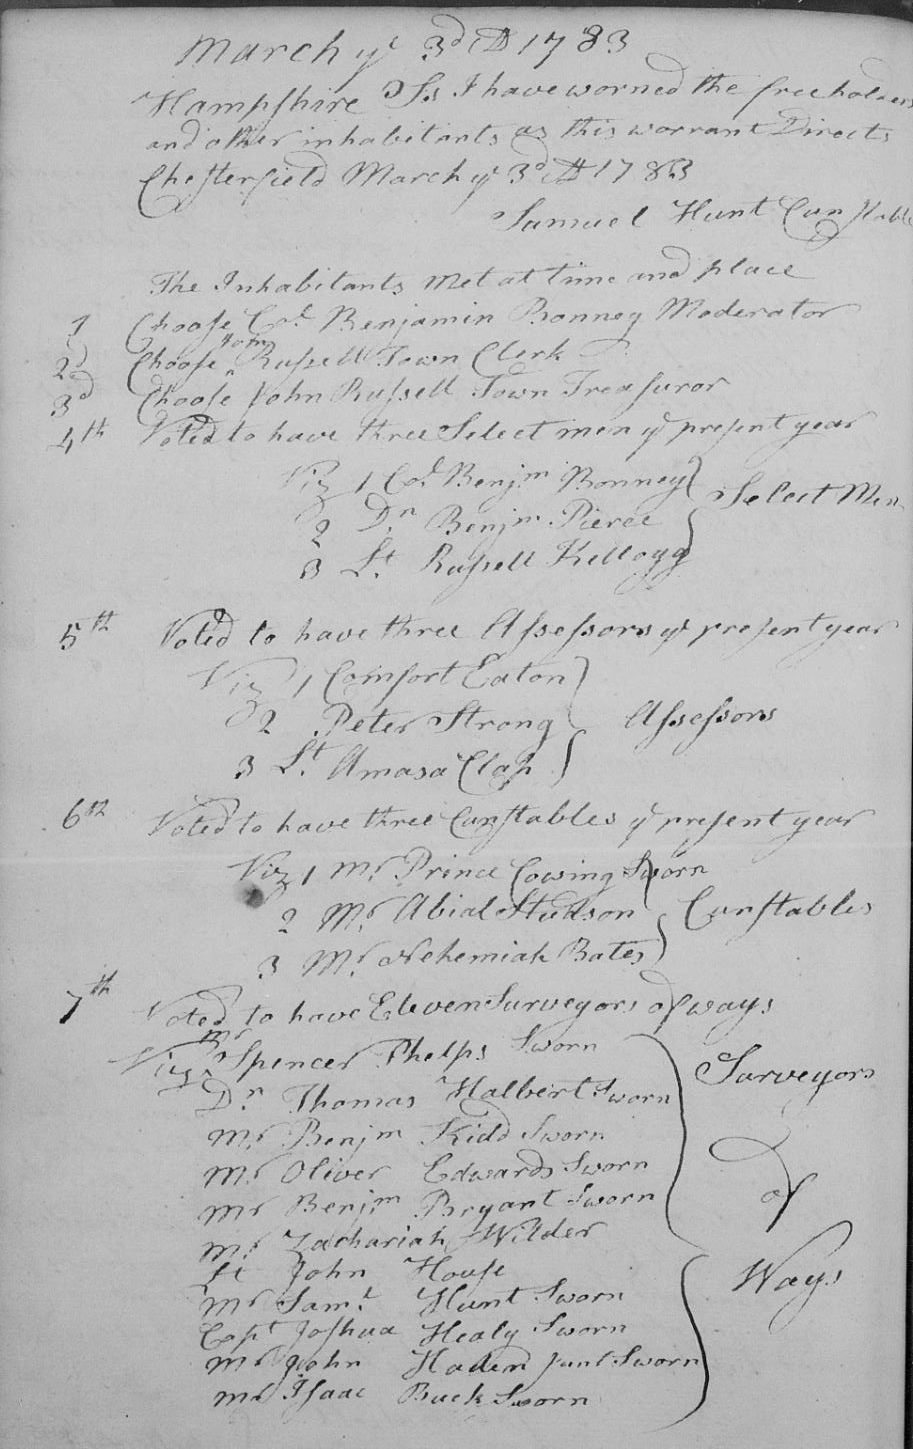 March ye 3d AD 1783
Hampshire Ss I have worned the freeholders
and other inhabitants as this worrant Directs
Chesterfield March ye 3d AD 1783
Samuel Hunt Cunstable
The Inhabitants Met at time and place
1 Choose Col Benjamin Bonney Moderator
2d Choose John Russell Town Clerk
3d Choose John Russell Town Treasuror
4th Voted to have three Select men ye present year
Viz 1 Col Benjm Bonney
2 Dn Benjm Pierce
3 Lt Russell Kellogg
Select Men
5th Voted to have three Assessors ye present year
Viz 1 Comfort Eaton
2 Peter Strong
3 Lt Amasa Clap
Assessors
6th Voted to have three Cunstables ye present year
Viz 1 Mr Prince Cowing Sworn
2 Mr Abial Studson
3 Mr Nehemiah Bates
Cunstables
7th Voted to have Eleven Surveyors of ways
Viz Mr Spencer Phelps Sworn
Dn Thomas Halbert Sworn
Mr Benjm Kidd Sworn
Mr Oliver Edwards Sworn
Mr Benjm Bryant Sworn
Mr Zachariah Wilder
Lt John House
Mr Saml Hunt Sworn
Capt Joshua Healy Sworn
Mr John Haden junr Sworn
Mr Isaac Buck Sworn
Surveyors
of
Ways